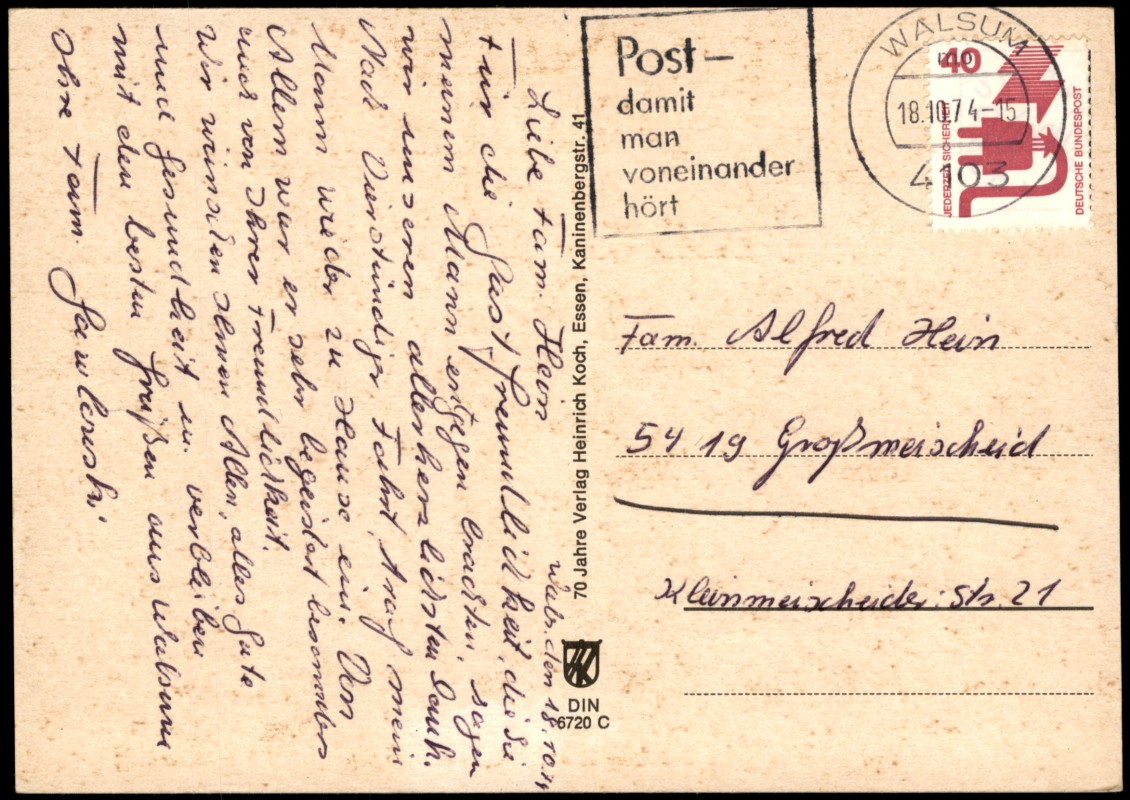 Wals. den 18.10.74
Liebe Fam. Hein
Für die Gastfreundlichkeit, die Sie
meinem Mann entgegen brachten, sagen
wir unseren allerherzlichsten Dank.
Nach Vierstündiger Fahrt, traf mein
Mann wieder zu Hause ein. Von
Allem war er sehr begeistert besonders
auch von Ihrer Freundlichkeit.
Wir wünschen Ihnen Allen, alles Gute
und Gesundheit u. verbleiben
mit den besten Grüßen aus Walsum
Ihre Fam.
70 Jahre Verlag Heinrich Koch, Essen, Kaninenbergstr. 41
DIN
6720 C
Post –
damit
man
voneinander
hört
WALSUM
18.10.74-15
4103
40
JEDERZEIT SICHERHEIT
DEUTSCHE BUNDESPOST
Fam. Alfred Hein
5419 Großmeischeid
Kleinmeischeider. Str. 21